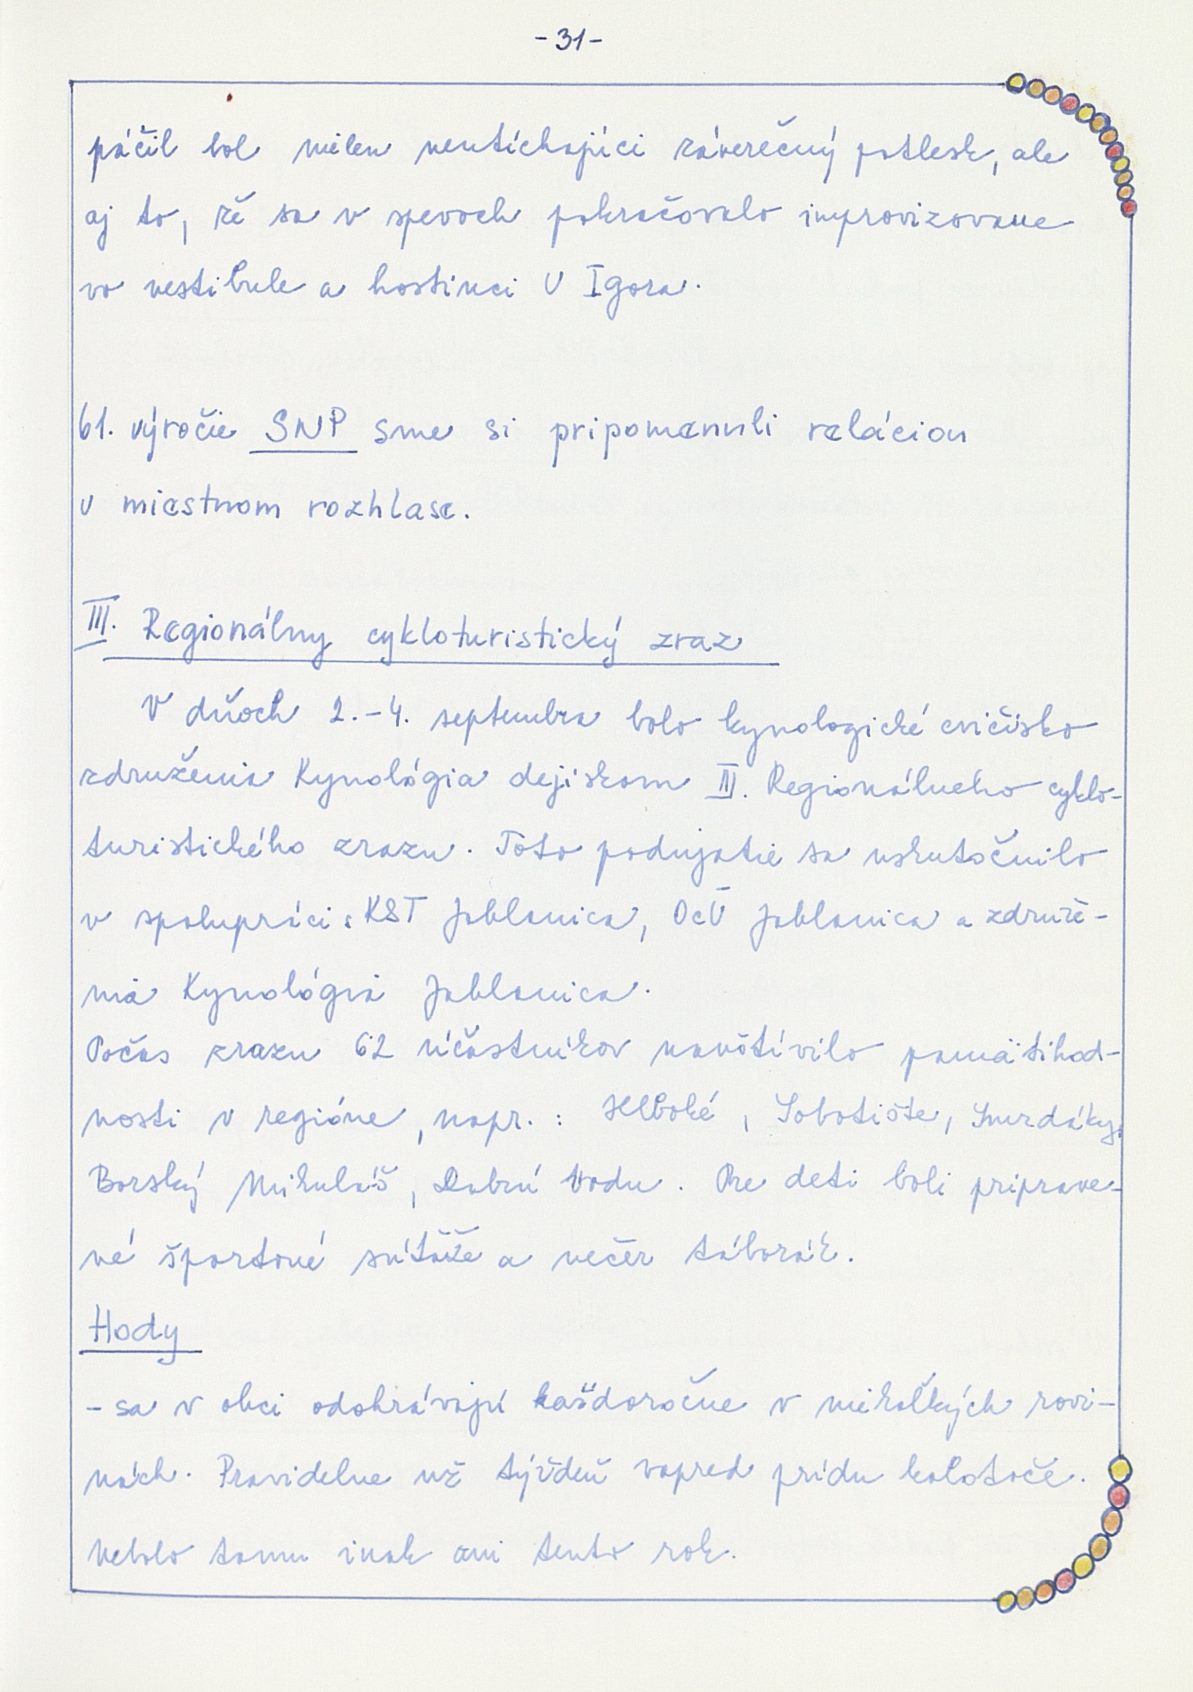 - 31 -
páčil bol nielen neutíchajúci záverečný potlesk, ale
aj to, že sa v spevoch pokračovalo improvizovane
vo vestibule a hostinci U Igora.
61. výročie SNP sme si pripomenuli reláciou
v miestnom rozhlase.
III. Regionálny cykloturistický zraz
V dňoch 2.-4. septembra bolo kynologické cvičisko
združenia Kynológia dejiskom III. Regionálneho cyklo-
turistického zrazu. Toto podujatie sa uskutočnilo
v spolupráci: KST Jablonica, OcÚ Jablonica a združe-
nia Kynológia Jablonica.
Počas zrazu 62 účastníkov navštívilo pamätihod-
nosti v regióne, napr.: Hlboké, Sobotište, Smrdáky,
Borský Mikuláš, Dobrú Vodu. Pre deti boli priprave-
né športové súťaže a večer táborák.
Hody
- sa v obci odohrávajú každoročne v niekoľkých rovi-
nách. Pravidelne už týždeň vopred prídu kolotoče.
Nebolo tomu inak ani tento rok.